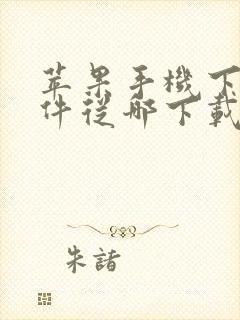 苹果手機下
件從哪下載
朱諸